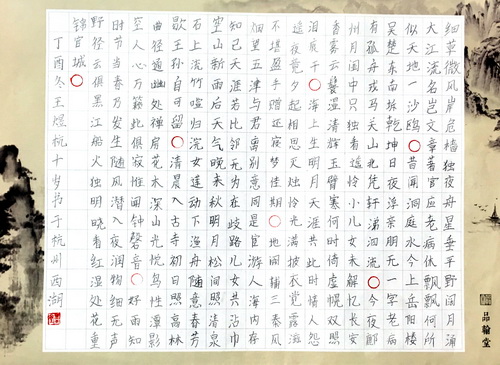 细草微风岸危樯独夜舟星垂平野阔月涌
大江流名岂文章著官应老病休飘飘何所
似天地一沙鸥○昔闻洞庭水今上岳阳楼
吴楚东南坼乾坤日夜浮亲朋无一字老病
有孤舟戎马关山北凭轩涕泗流○今夜鄜
州月闺中只独看遥怜小儿女未解忆长安
香雾云鬟湿清辉玉臂寒何时倚虚幌双照
泪痕干○海上生明月天涯共此时情人怨
遥夜竟夕起相思灭烛怜光满披衣觉露滋
不堪盈手赠还寝梦佳期○城阙辅三秦风
烟望五津与君离别意同是宦游人海内存
知己天涯若比邻无为在歧路儿女共沾巾
空山新雨后天气晚来秋明月松间照清泉
石上流竹喧归浣女莲动下渔舟随意春芳
歇王孙自可留○清晨入古寺初日照高林
曲径通幽处禅房花木深山光悦鸟性潭影
空人心万籁此俱寂惟闻钟磬音○好雨知
时节当春乃发生随风潜入夜润物细无声
野径云俱黑江船火独明晓看红湿处花重
锦官城○
丁酉冬王煜杭十岁书于杭州西湖
品翰堂